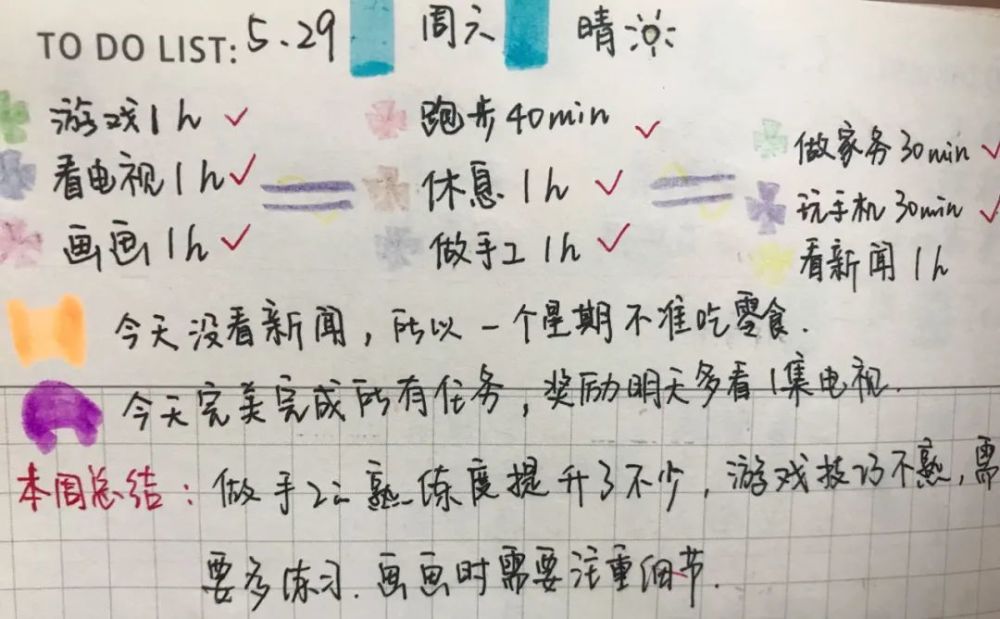 TO DO LIST: 5.29 周六 晴
游戏1h ✓ 跑步40min ✓ 做家务30min ✓
看电视1h ✓ 休息1h ✓ 玩手机30min ✓
画画1h ✓ 做手工1h ✓ 看新闻1h
今天没看新闻，所以一个星期不准吃零食.
今天完美完成所有任务，奖励明天多看1集电视.
本周总结：做手工的熟练度提升了不少，游戏技巧不熟，需
要多练习.画画时需要注重细节.